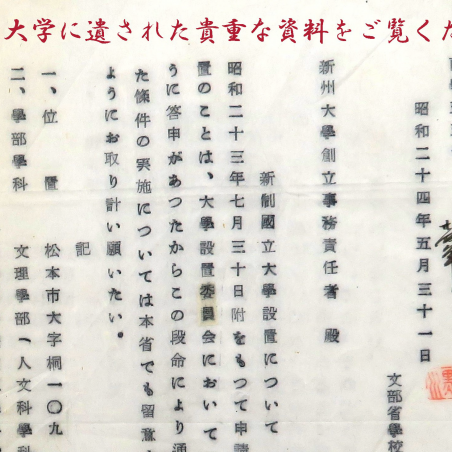 大学に遺された貴重な資料をご覧くだ
昭和二十四年五月三十一日
文部省學校
新州大學創立事務責任者 殿
新制國立大學設置について
昭和二十三年七月三十日附をもつて申請
置のことは、大學設置委員会において
うに答申があつたからこの段命により通
た條件の実施については本省でも留意
ようにお取り計い願いたい。
記
一、位置 松本市大字桐一〇九
二、學部學科 文理學部(人文科學科